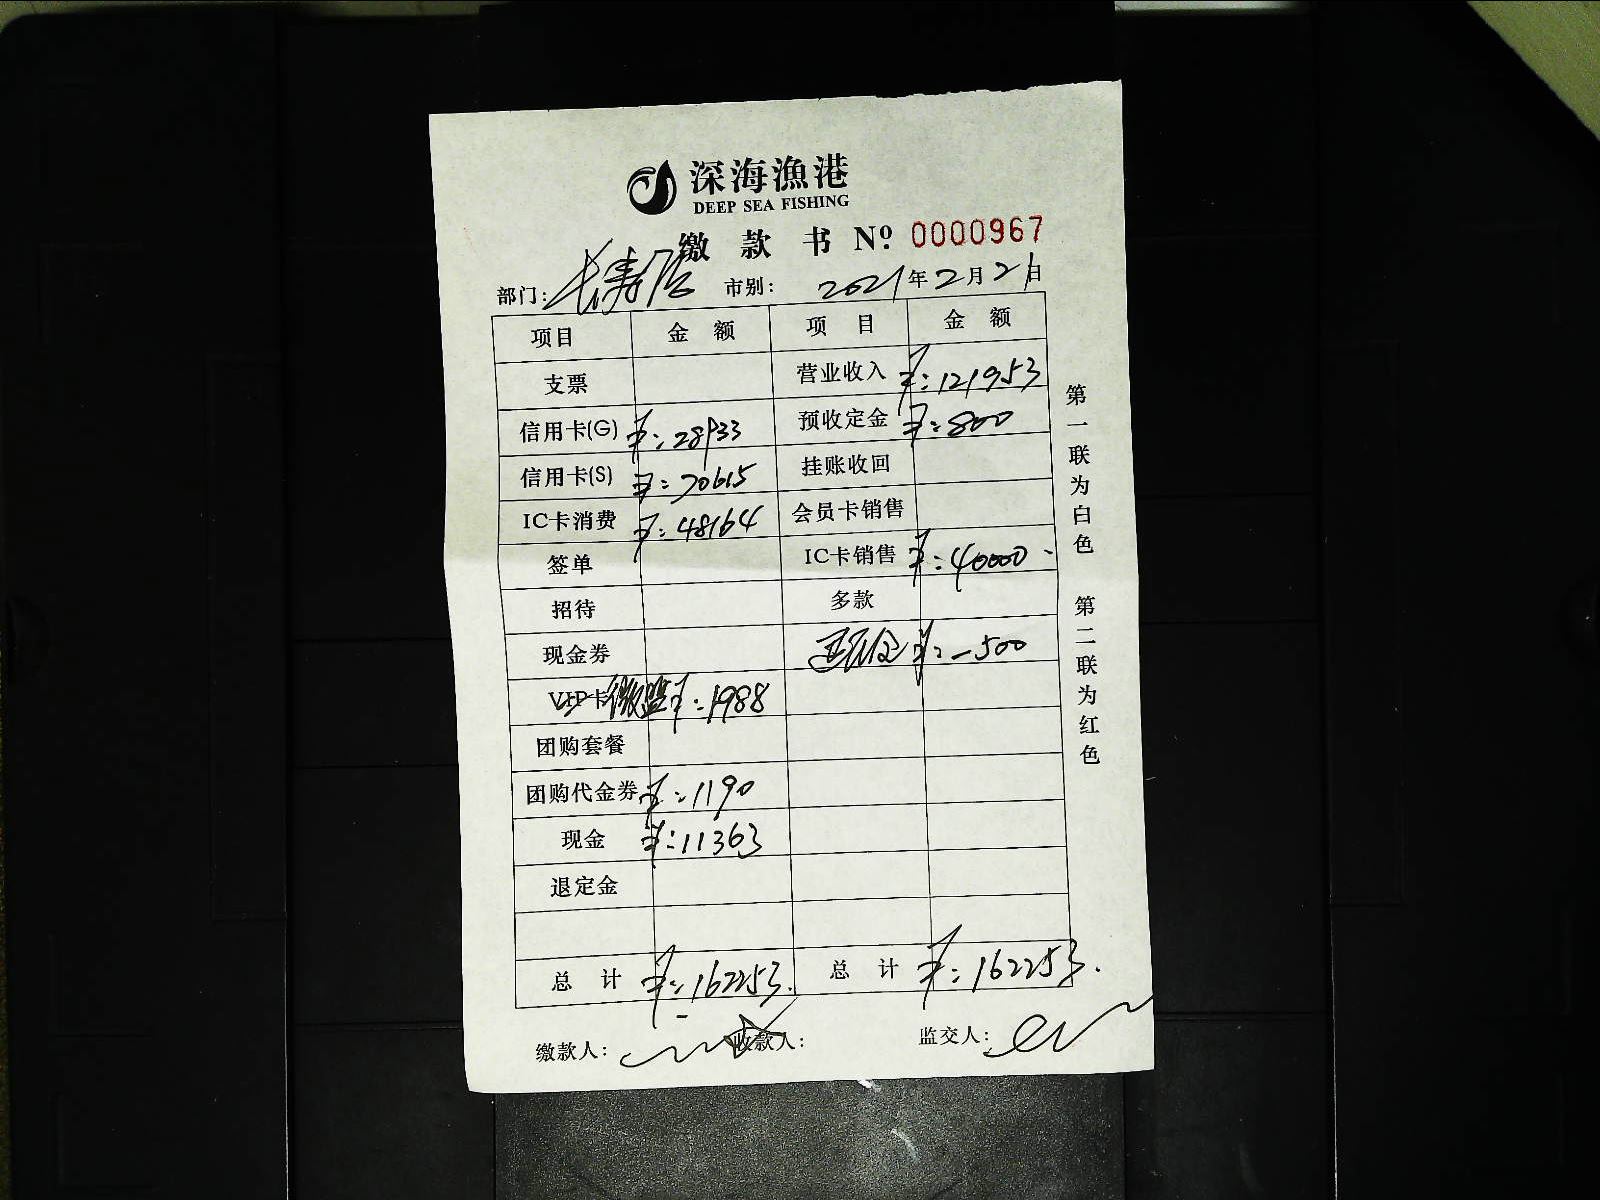 深海漁港
DEEP SEA FISHING
缴款书 Nº. 0000967
部门: 长寿店 市别: 2021年2月21日
项目 金额 项目 金额
支票 营业收入 ¥:121953
信用卡(G) ¥:28933 预收定金 ¥:800
信用卡(S) ¥:70615 挂账收回
IC卡消费 ¥:48164 会员卡销售
签单 IC卡销售 ¥:40000
招待 多款
现金券 ¥:-500
VIP卡 微盟 ¥:1988
团购套餐
团购代金券 ¥:1190
现金 ¥:11363
退定金
总计 ¥:162253. 总计 ¥:162253.
缴款人: 收款人: 监交人:
第一联为白色 第二联为红色